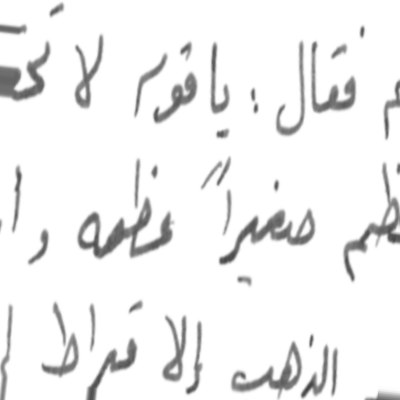 فقال : يا قوم لا
صغيراً عظمه و
الذهب إلا قيراط